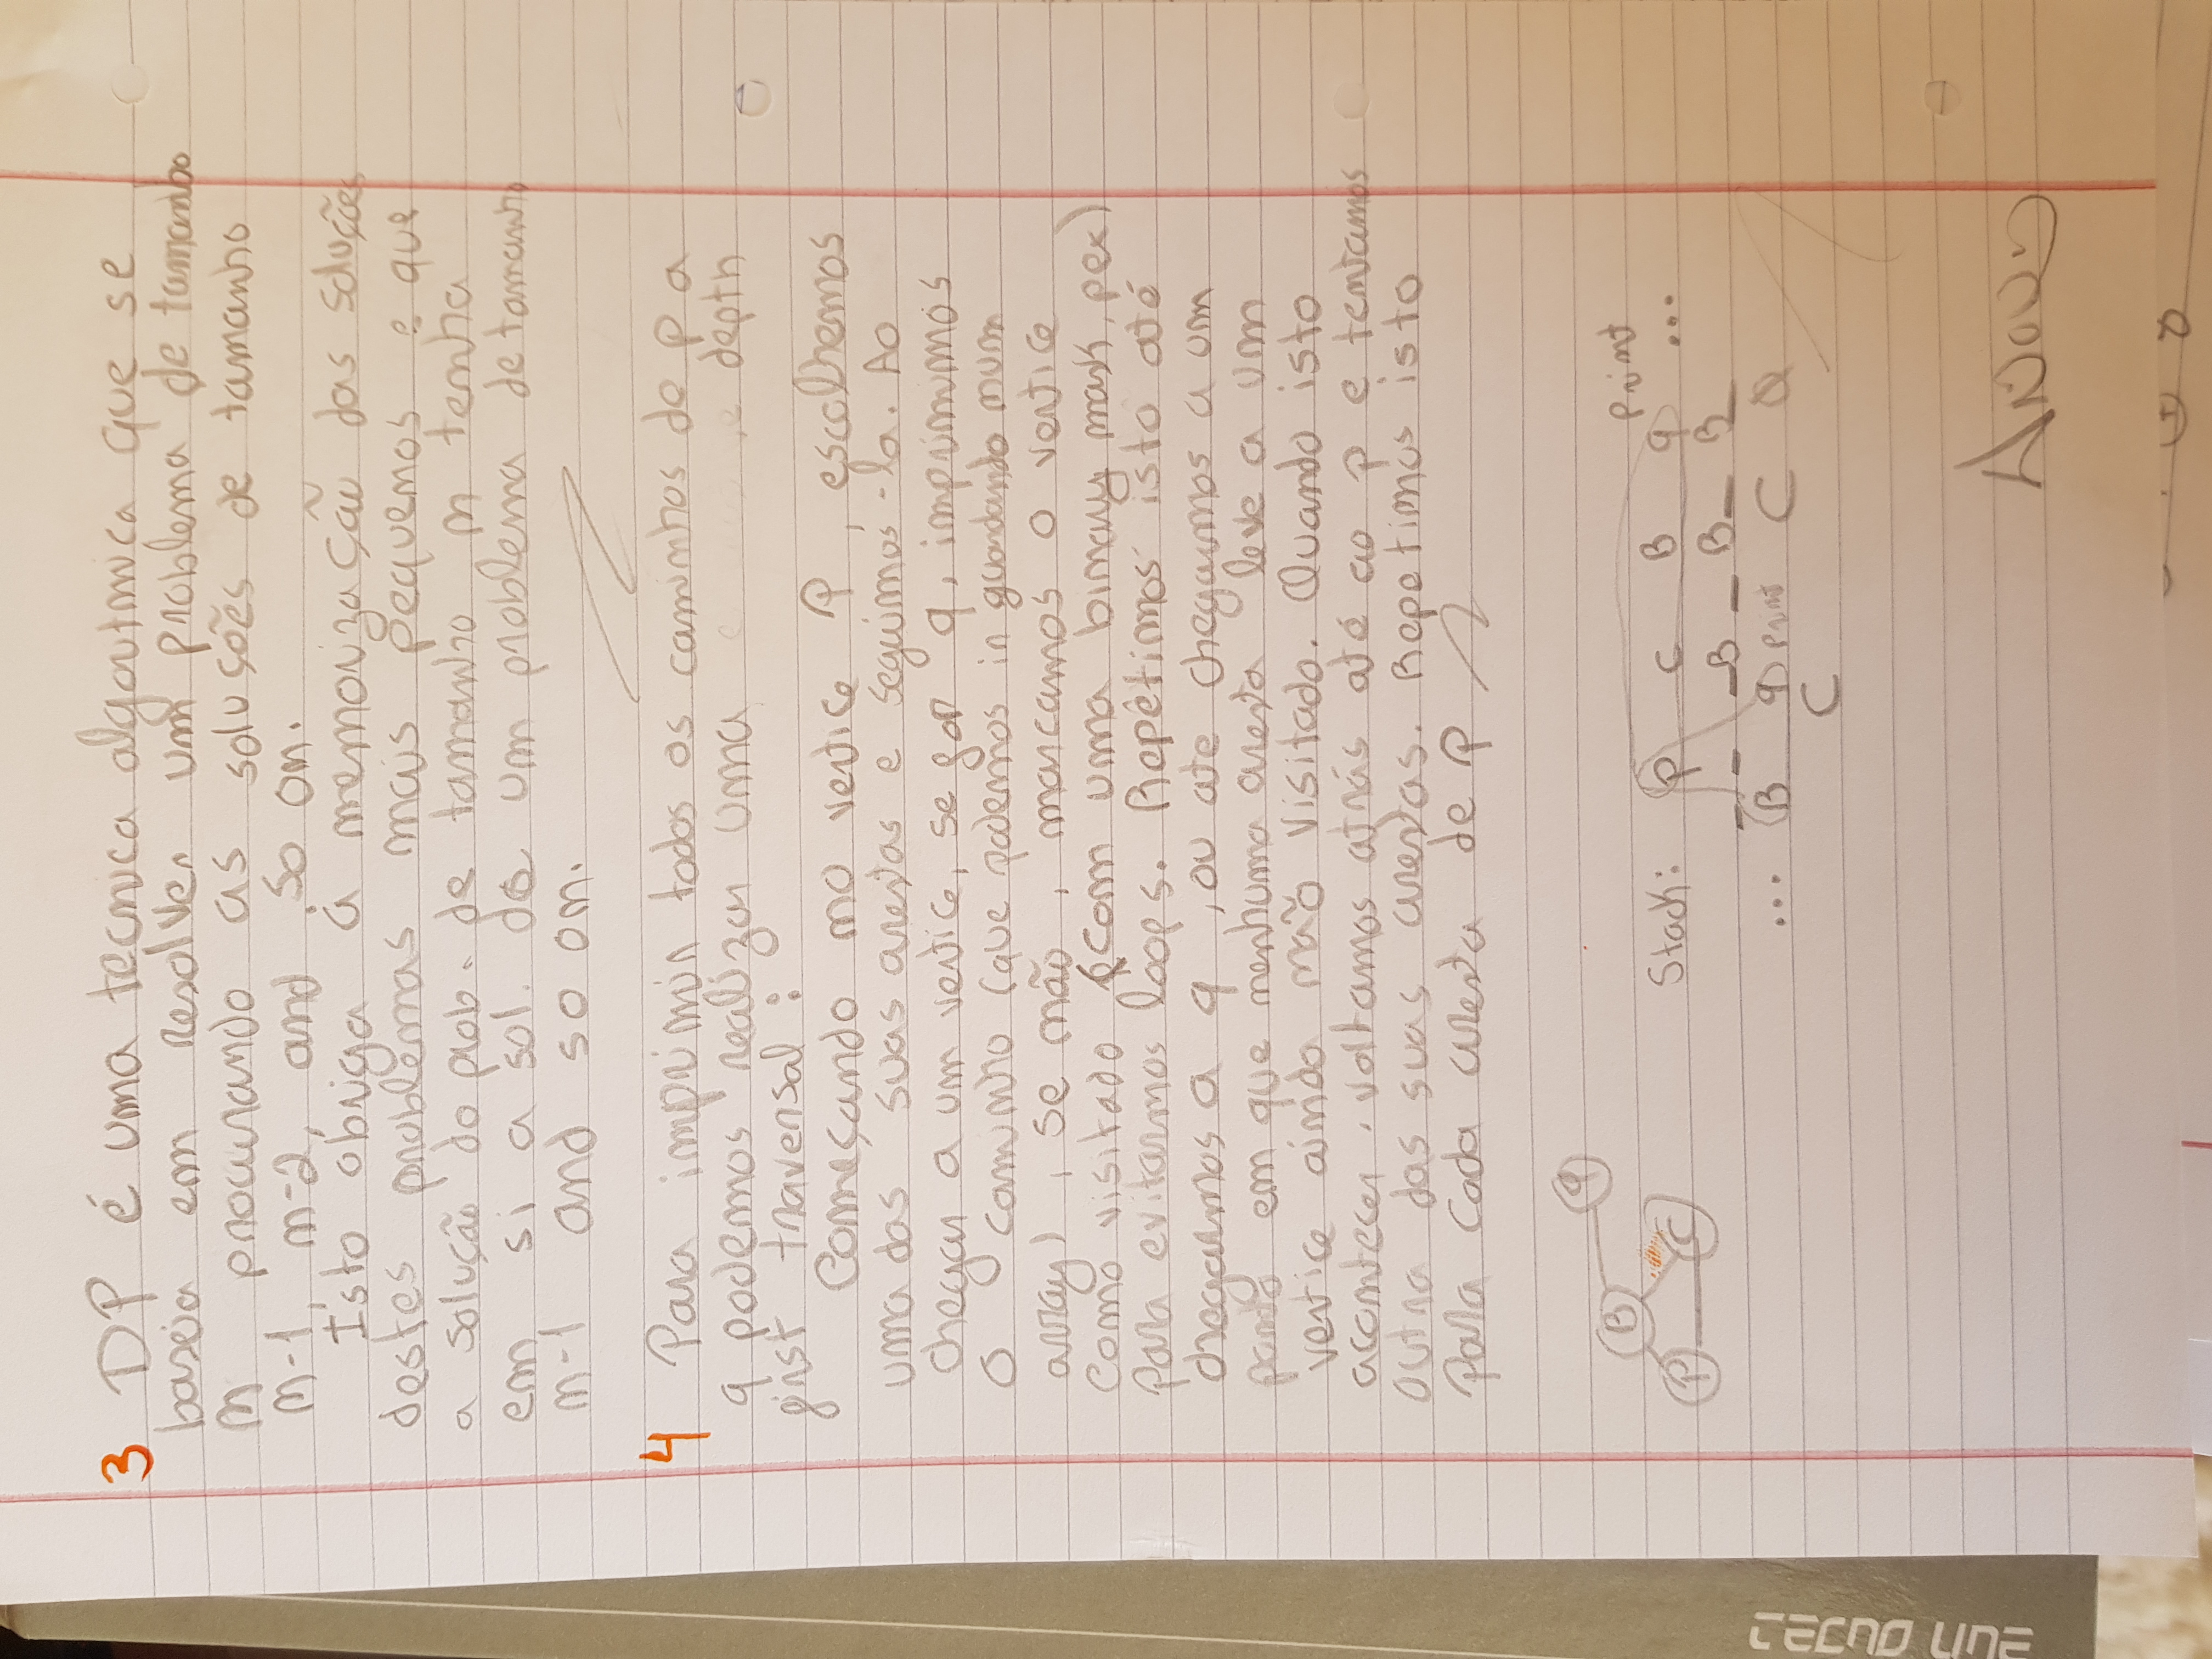 3 DP é uma tecnica algoritmica que se
baseia em resolver um problema de tamanho
n procurando as soluções de tamanho
n-1, n-2, and so on.
Isto obriga à memorização das soluções
destes problemas mais pequenos e que
a solução do prob. de tamanho n tenha
em si a sol. de um problema de tamanho
n-1 and so on.
4 Para imprimir todos os caminhos de p a
q podemos realizar uma depth
first traversal:
Começando no vertice P, escolhemos
uma das suas arestas e seguimos-la. Ao
chegar a um vertice, se for q, imprimimos
o caminho (que podemos ir guardando num
array), se não, marcamos o vertice
como visitado (com uma binary mask, pex)
para evitarmos loops. Repetimos isto até
chegarmos a q, ou ate chegarmos a um
ponto em que nenhuma aresta leve a um
vertice ainda não visitado. Quando isto
acontecer, voltamos atrás até ao p e tentamos
outra das suas arestas. Repetimos isto
para cada aresta de P
q
B
P C
Print
Stack: P C B q ...
B B B
... B q Print C
C